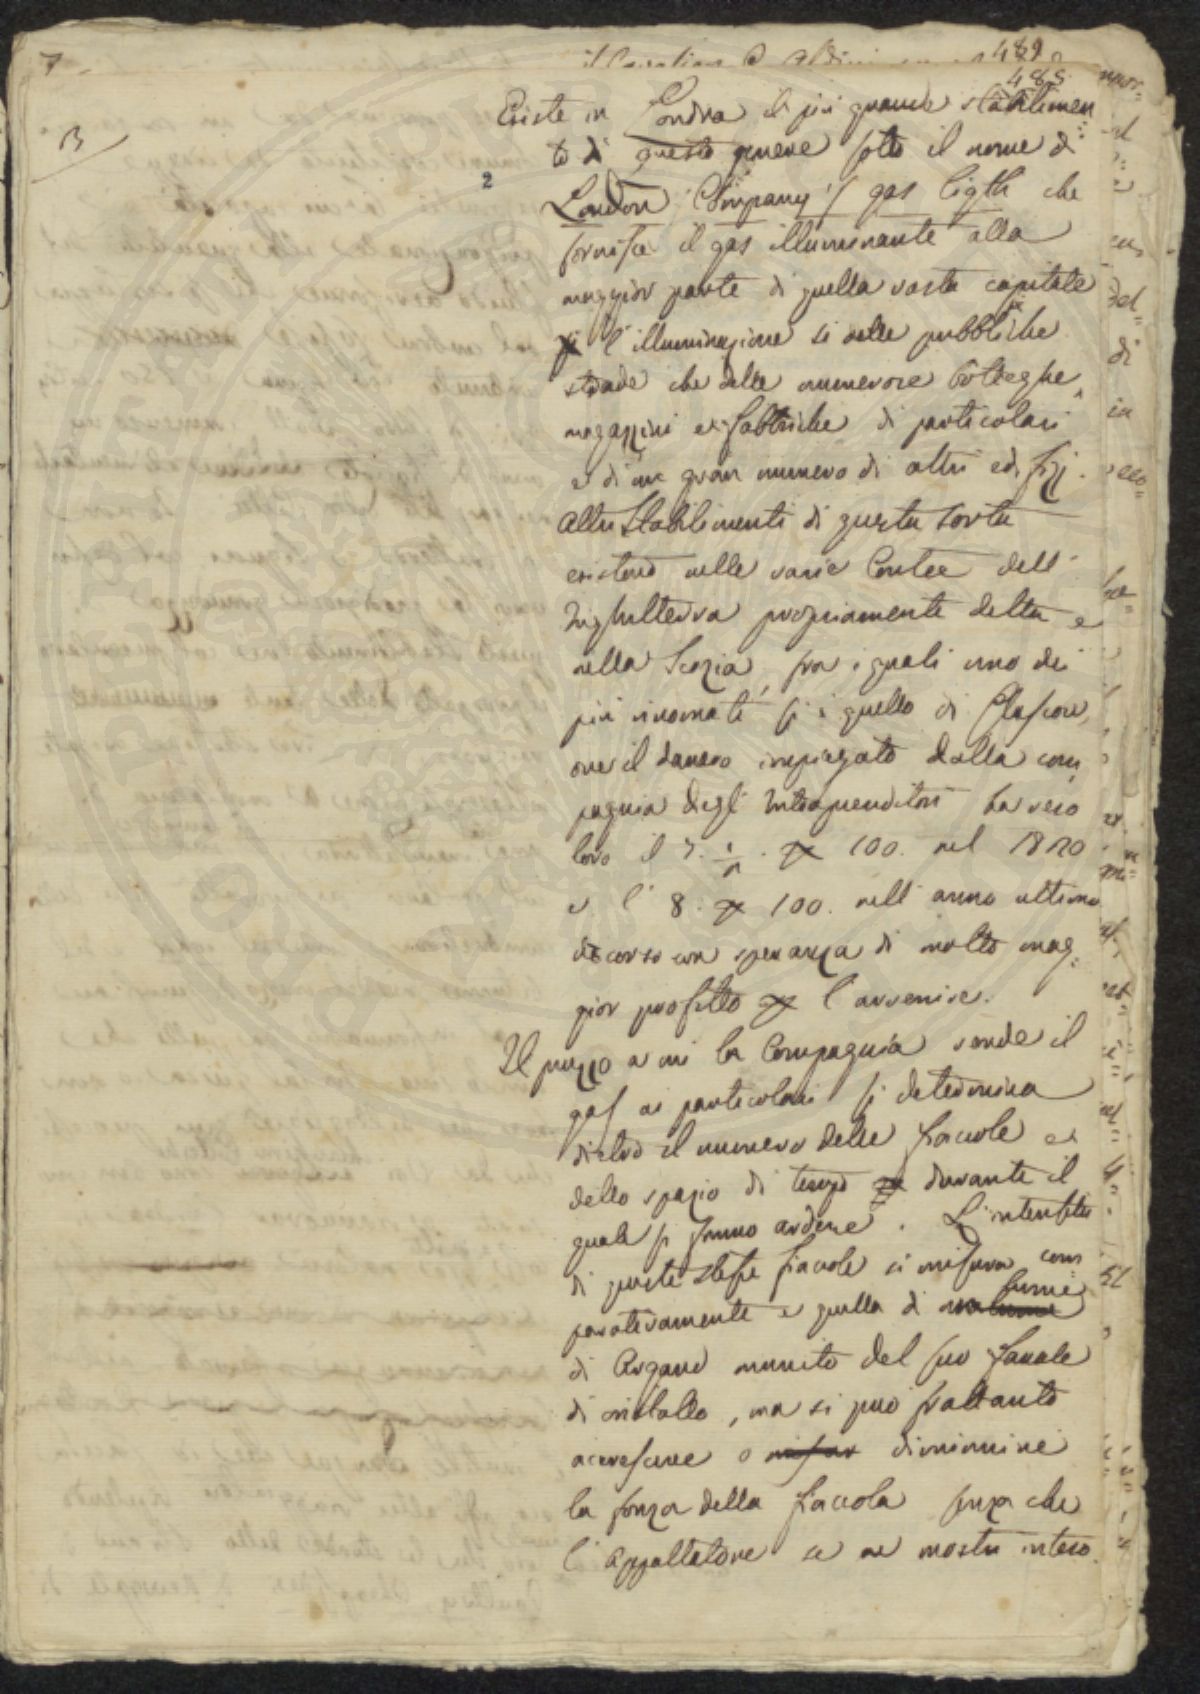 7
489
485
B
2
Esiste in Londra il più grande stabilimen
to di questo genere sotto il nome di
London Company's gas ligth che
fornisce il gas illuminante alla
maggior parte di quella vasta capitale
p l'illuminazione sì delle pubbliche
strade che delle numerose botteghe,
magazzini e fabbriche di particolari
e di un gran numero di altri edifizj.
Altri Stabilimenti di questa sorta
esistono nelle varie Contee dell'
Inghilterra propriamente detta e
nella Scozia, fra i quali uno dei
più rinomati si è quello di Glascow,
ove il danaro impiegato dalla com
pagnia degl' Intraprenditori ha reso
loro il 7. 1/2. p 100. nel 1820
e l' 8. p 100. nell' anno ultimo
decorso con speranza di molto mag
gior profitto p l'avvenire.
Il prezzo a cui la Compagnia vende il
gas ai particolari si determina
dietro il numero delle fiaccole e
dello spazio di tempo durante il
quale si fanno ardere. L'intensità
di queste stesse fiaccole si misura com
parativamente a quella di lume
di Argand munito del suo fanale
di cristallo, ma si può frattanto
accrescere o diminuire
la forza della fiaccola senza che
l'Appaltatore se ne mostri inteso.